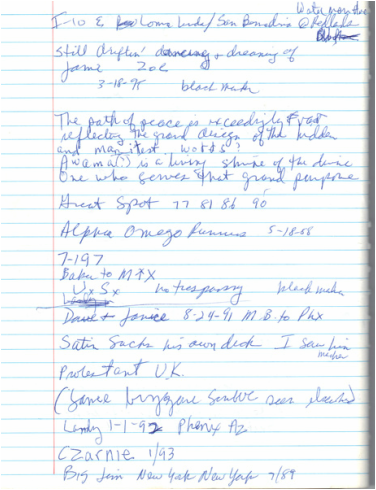 Water more than
I-10 E Loma Linda/San Bernardino @ Redlands
Still driftin' dancing + dreaming of
Jamie Zoe
3-18-95 black marker
The path of peace is exceedingly vast
reflecting the grand design of the hidden
and manifest. words?
A wama(?) is a living shrine of the divine
One who serves that grand purpose
Great Spot 77 81 86 90
Alpha Omega Runners 5-18-88
7-197
Baker to M X
Ux Sx no trespassing black marker
Dave + Janice 8-24-91 M.B. to Phx
Satin Sachs his own deck I saw him
marker
Protestant U.K.
(Jamie seen
Landy 1-1-92 Phenix Az
CZarnie 1/93
Big Jim New York New York 7/89